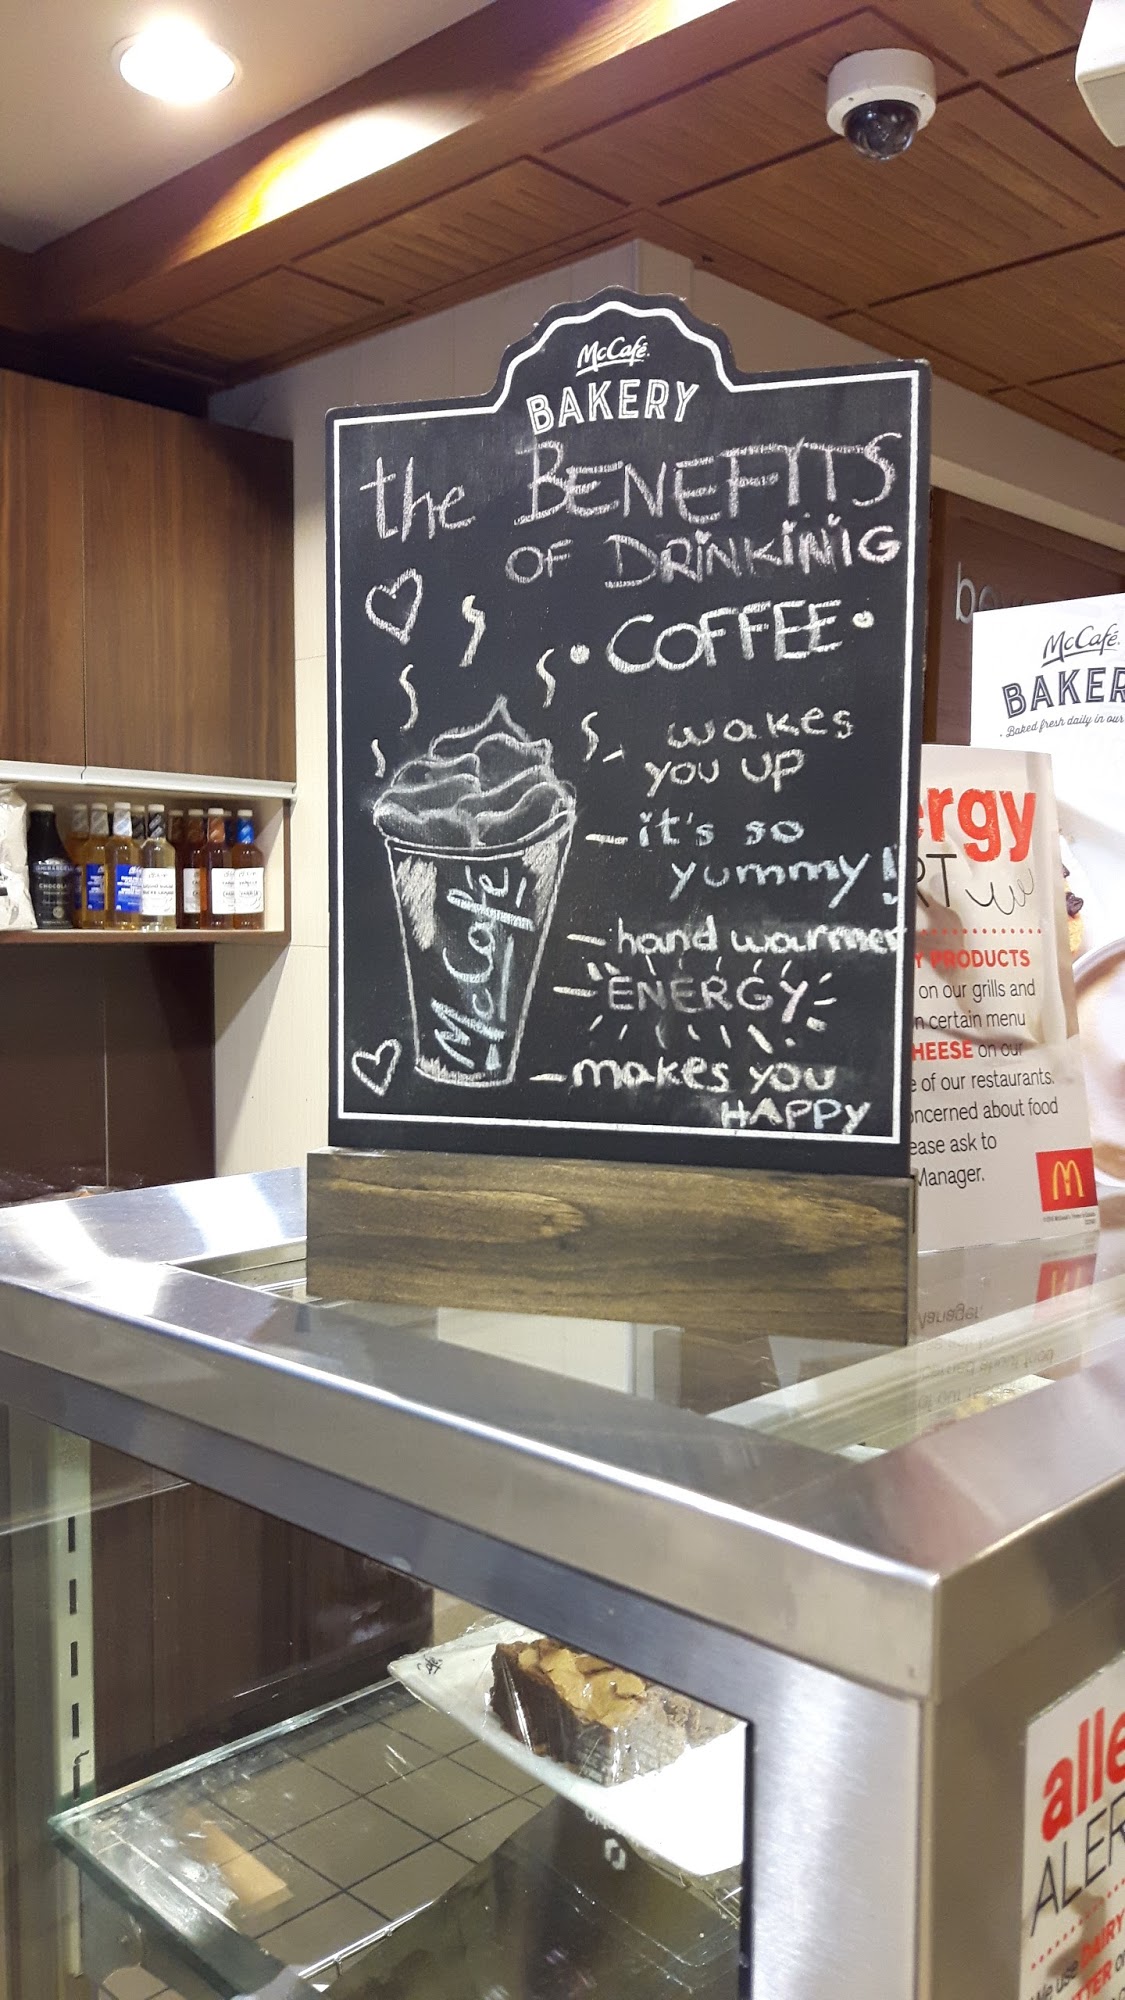 McCafé
BAKERY
the BENEFITS
OF DRINKINIG
• COFFEE •
- wakes
you up
- it's so
yummy!
- hand warmer
- ENERGY
- makes you
HAPPY
McCafé
McCafé
BAKER
Baked fresh daily in our
ergy
RT
Y PRODUCTS
on our grills and
n certain menu
HEESE on our
e of our restaurants.
oncerned about food
ease ask to
Manager.
CHOCOLA
alle
ALER
We use DAIRY